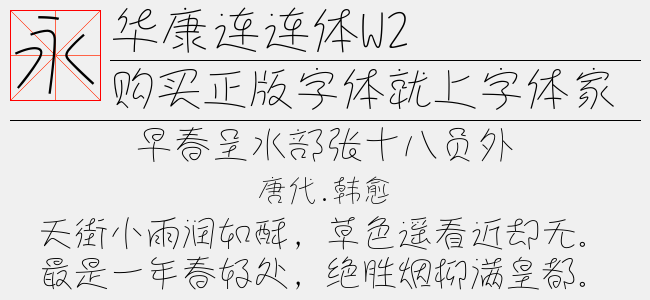 永
华康连连体W2
购买正版字体就上字体家
早春呈水部张十八员外
唐代.韩愈
天街小雨润如酥，草色遥看近却无。
最是一年春好处，绝胜烟柳满皇都。